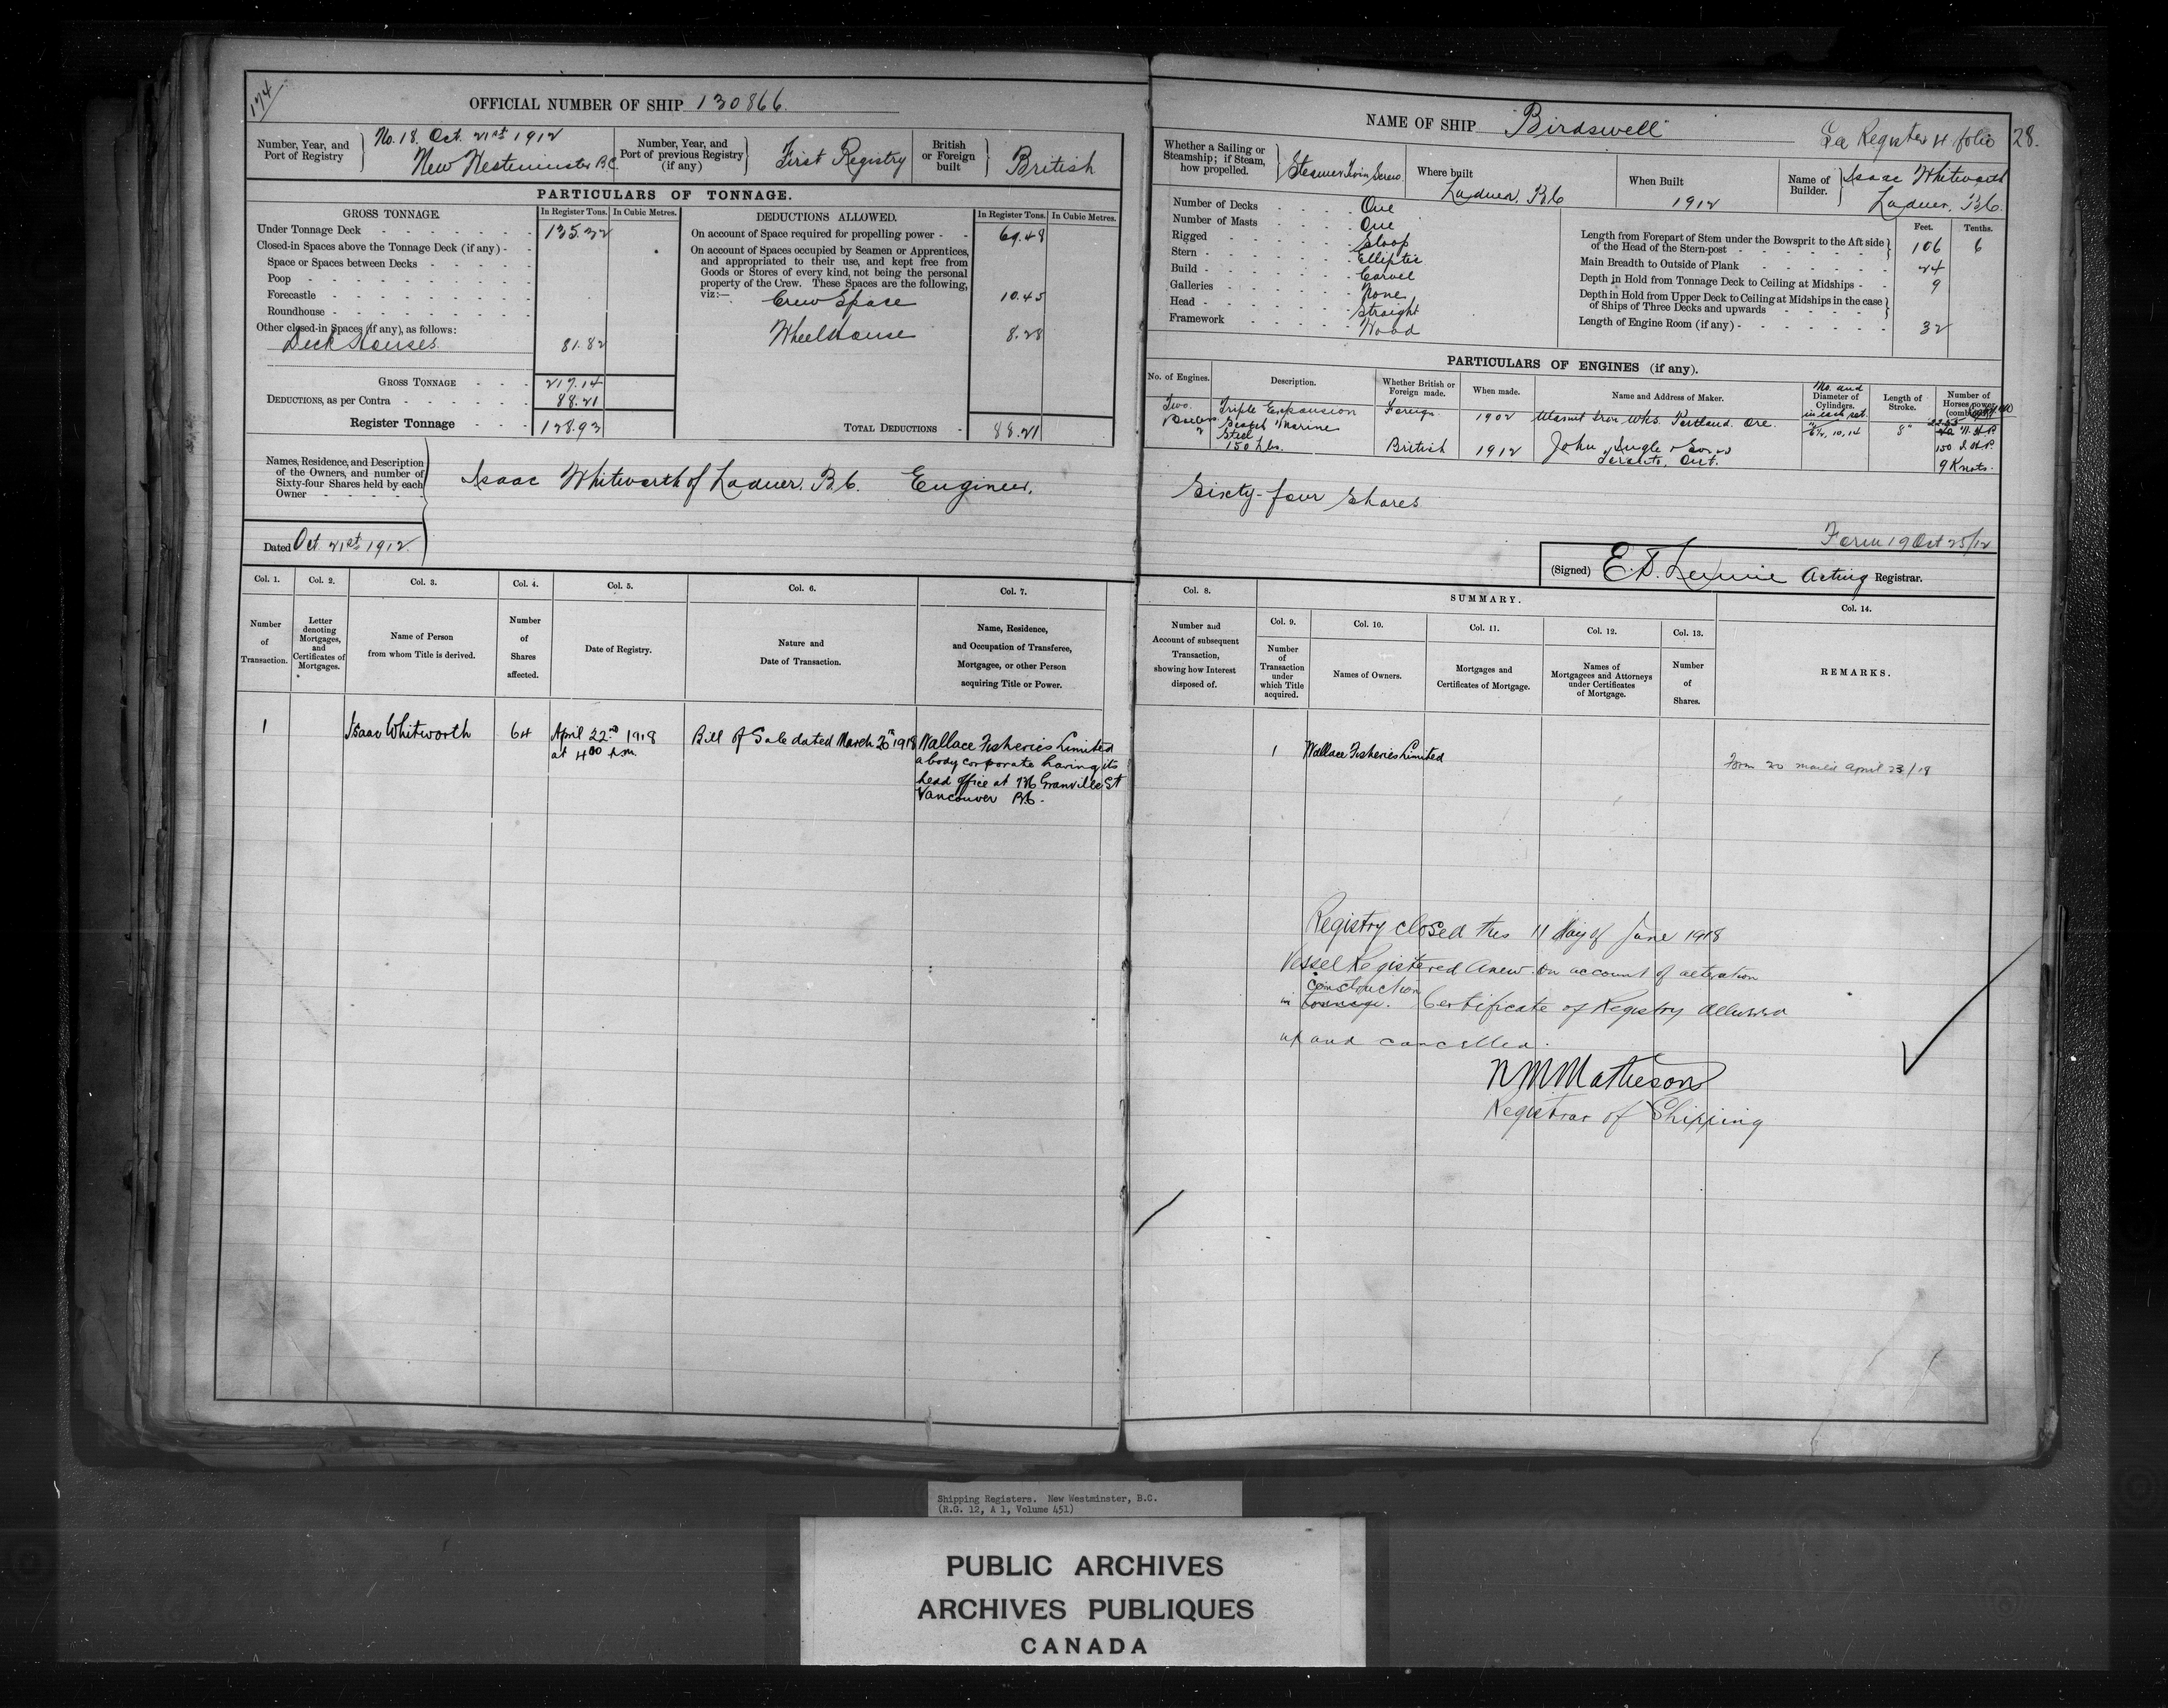 174
OFFICIAL NUMBER OF SHIP 130866.
Number, Year, and Port of Registry
No. 18. Oct. 21st 1912
New Westminster B.C.
Number, Year, and Port of previous Registry (if any)
First Registry
British or Foreign built
British
PARTICULARS OF TONNAGE.
GROSS TONNAGE. In Register Tons. In Cubic Metres.
Under Tonnage Deck 135.32
Closed-in Spaces above the Tonnage Deck (if any)
Space or Spaces between Decks
Poop
Forecastle
Roundhouse
Other closed-in Spaces (if any), as follows:
Deck Houses. 81.82
GROSS TONNAGE 217.14
DEDUCTIONS, as per Contra 88.21
Register Tonnage 128.93
DEDUCTIONS ALLOWED. In Register Tons. In Cubic Metres.
On account of Space required for propelling power 69.48
On account of Spaces occupied by Seamen or Apprentices,
and appropriated to their use, and kept free from
Goods or Stores of every kind, not being the personal
property of the Crew. These Spaces are the following,
viz:—
Crew Space 10.45
Wheelhouse 8.28
TOTAL DEDUCTIONS 88.21
Names, Residence, and Description
of the Owners, and number of
Sixty-four Shares held by each
Owner
Isaac Whitworth of Ladner. B.C. Engineer.
Dated Oct 21st 1912.
NAME OF SHIP "Birdswell"
Register 4 folio 28.
Whether a Sailing or Steamship; if Steam, how propelled.
Steamer Twin Screw
Where built
Ladner. B.C.
When Built
1912
Name of Builder.
Isaac Whitworth
Ladner. B.C.
Number of Decks One
Number of Masts One
Rigged Sloop
Stern Elliptic
Build Carvel
Galleries None
Head Straight
Framework Wood
Feet. Tenths.
Length from Forepart of Stem under the Bowsprit to the Aft side of the Head of the Stern-post 106 6
Main Breadth to Outside of Plank 24
Depth in Hold from Tonnage Deck to Ceiling at Midships 9
Depth in Hold from Upper Deck to Ceiling at Midships in the case of Ships of Three Decks and upwards
Length of Engine Room (if any) 32
PARTICULARS OF ENGINES (if any).
No. of Engines. Description. Whether British or Foreign made. When made. Name and Address of Maker. No. and Diameter of Cylinders. in each set Length of Stroke. Number of Horses power (combined)
Two. Triple Expansion Foreign. 1902 Iron Wks. Portland. Ore. 10, 14 8" N.H.P.
2 Marine 150 I.H.P.
Steel
150 Lbs. British 1912 John Inglis & Sons 9 Knots.
Toronto, Ont.
Sixty-four Shares
Form 19 Oct 25/12
(Signed) E. D. Acting Registrar.
Col. 1. Col. 2. Col. 3. Col. 4. Col. 5. Col. 6. Col. 7.
Number of Transaction.
Letter denoting Mortgages, and Certificates of Mortgages.
Name of Person from whom Title is derived.
Number of Shares affected.
Date of Registry.
Nature and Date of Transaction.
Name, Residence, and Occupation of Transferee, Mortgagee, or other Person acquiring Title or Power.
1 Isaac Whitworth 64 April 22nd 1918 Bill of Sale dated March 20th 1918 Wallace Fisheries Limited
at 4.00 a body corporate having its
head office at Granville St
Vancouver B.C.
Col. 8. SUMMARY. Col. 14.
Number and Account of subsequent Transaction, showing how Interest disposed of.
Col. 9. Col. 10. Col. 11. Col. 12. Col. 13.
Number of Transaction under which Title acquired.
Names of Owners.
Mortgages and Certificates of Mortgage.
Names of Mortgagees and Attorneys under Certificates of Mortgage.
Number of Shares.
REMARKS.
1 Wallace Fisheries Limited
Form 20 mailed April 23/18
Registry closed this 11 day of June 1918
Vessel Registered Anew. On account of alteration
construction
in tonnage. Certificate of Registry
up and cancelled.
N M Matheson
Registrar of Shipping
Shipping Registers. New Westminster, B.C.
(R.G. 12, A 1, Volume 451)
PUBLIC ARCHIVES
ARCHIVES PUBLIQUES
CANADA